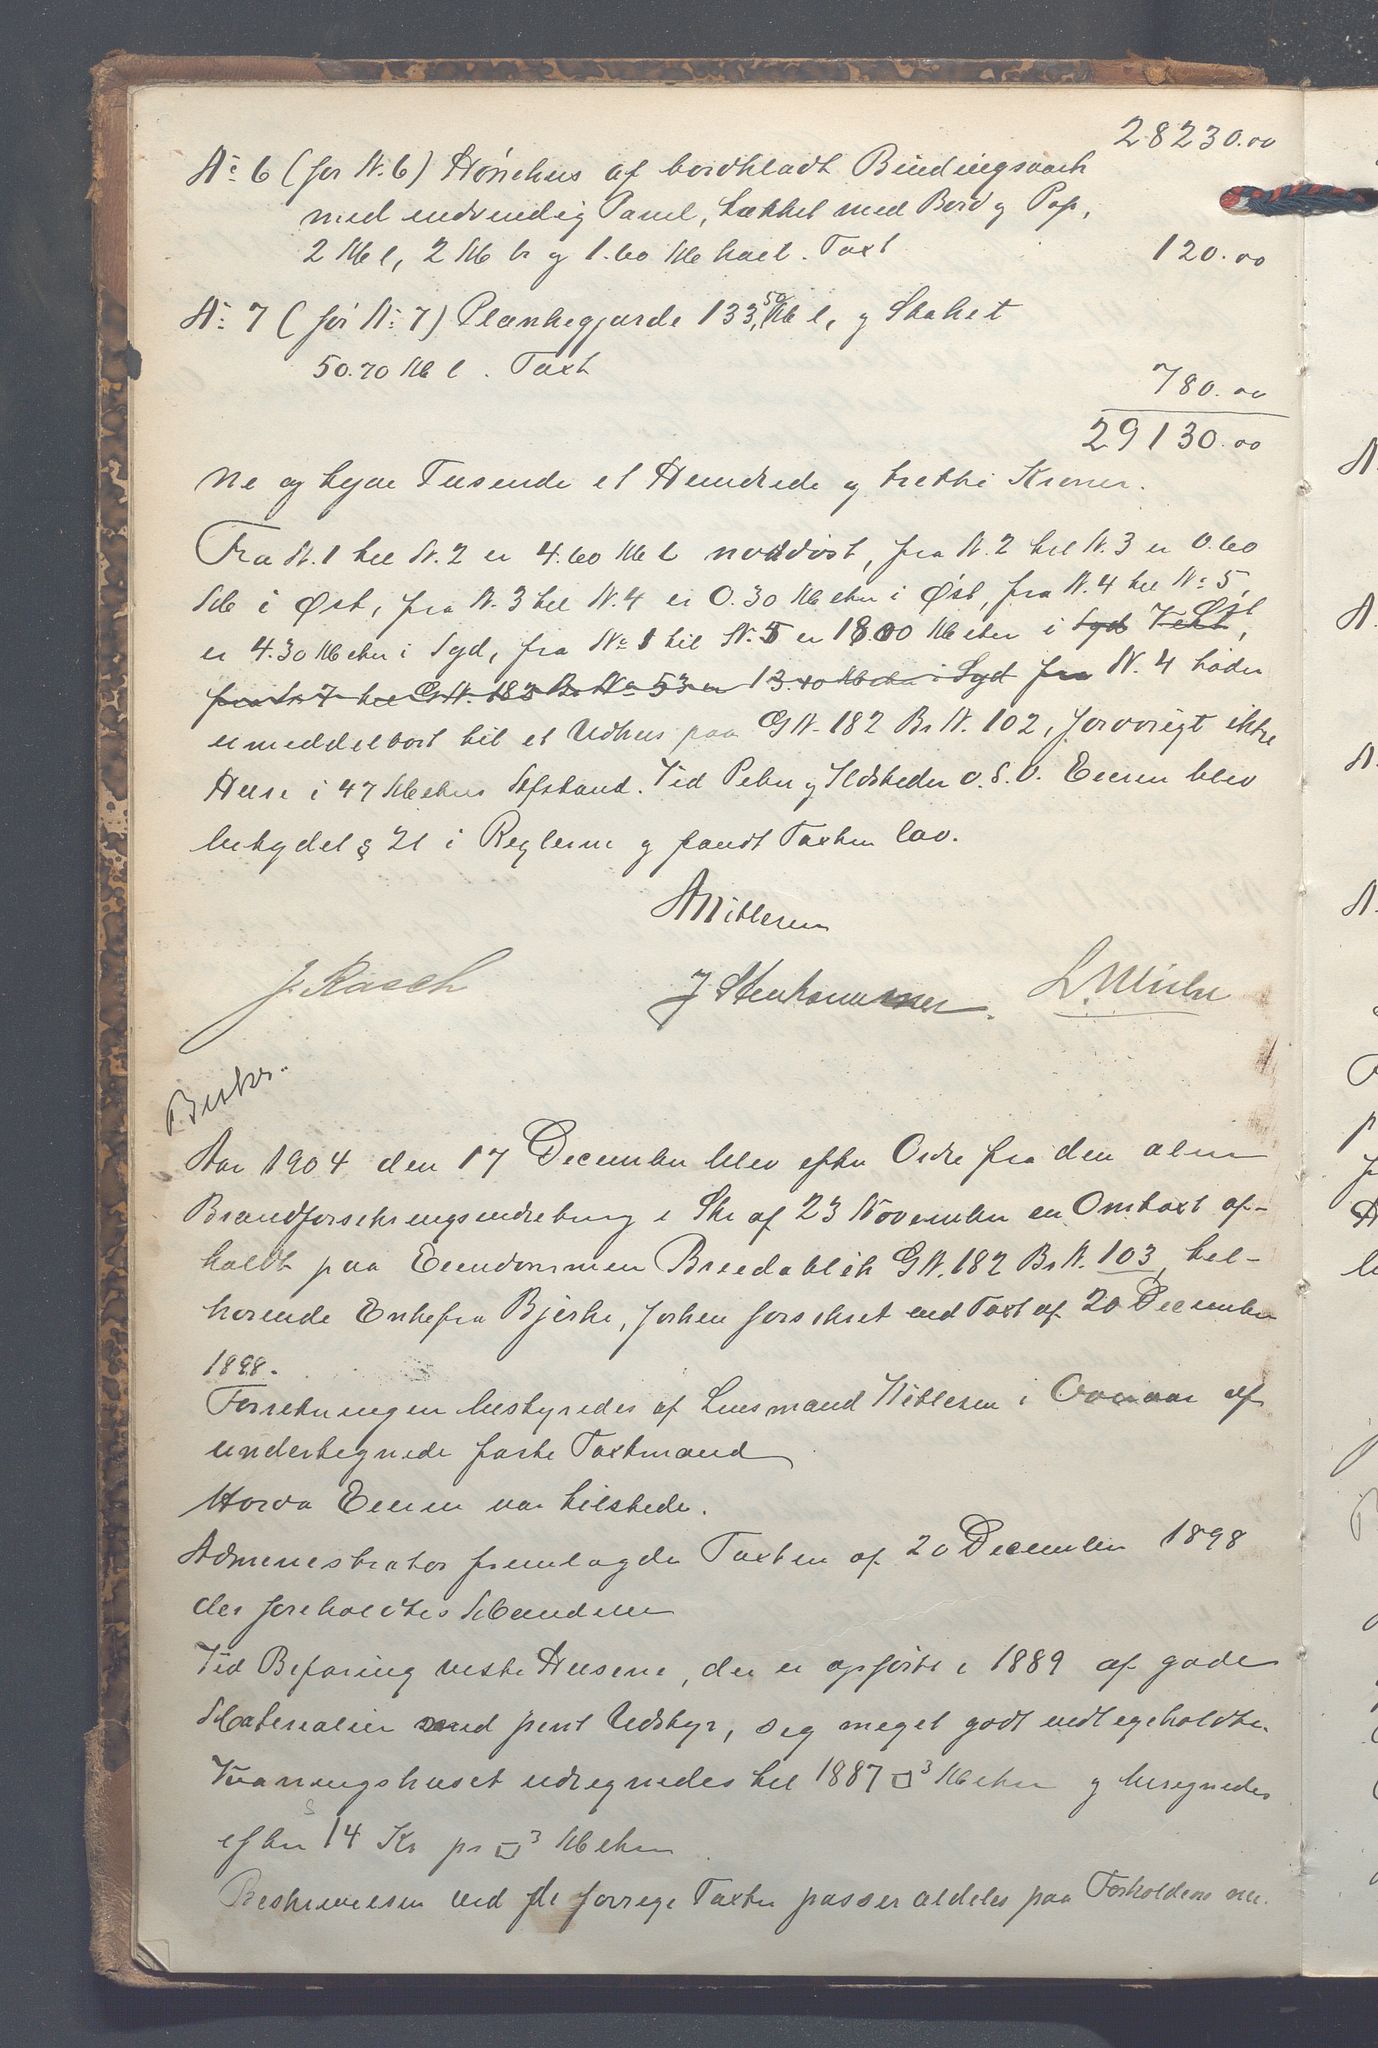 28230.00
No 6 (før N. 6) Hønsehus af bordklædt Bindingsværk
med indvendig Panel, tækket med Bord og Pap,
2 M l, 2 M br og 1.60 M høit. Taxt 120.00
No 7 (før No 7) Plankegjærde 133,50 M l, og Stakit
50.70 M l. Taxt
780.00
29130.00
Ni og tyve Tusende et Hundrede og tretti Kroner.
Fra N. 1 til N. 2 er 4.60 M i nordøst, fra N. 2 til N. 3 er 0.60
M i Øst, fra N. 3 til N. 4 er 0.30 Meter i Øst, fra N. 4 til No 5
er 4.30 Meter i Syd, fra No 1 til N. 5 er 18.00 Meter i Syd Vest Øst,
fra N. 7 til G.N. 182 Br. No 53 er 13.40 Meter i Syd fra N. 4 støder
umiddelbart til et Udhus paa G.N. 182 Br. N. 102, forøvrigt ikke
Huse i 47 Meters Afstand. Ved Peber og Ildsteder o.s.v. Eieren blev
betydet § 21 i Reglerne og fandt Taxten lav.
A Nitlesen
J. Rasch J Stenhammer. L. Ulriks
Bjerke.
Aar 1904 den 17 December blev efter Ordre fra den alm
Brandforsikringsindretning i Skr af 23 November en Omtaxt af-
holdt paa Eiendommen Breidablik G.N. 182 Br. N. 103, til-
hørende Enkefru Bjerke, forhen forsikret ved Taxt af 20 December
1898.
Forretningen bestyredes af Lensmand Nitlesen i Overvær af
undertegnede faste Taxtmænd
Hos Eieren var tilstede.
Administrator fremlagde Taxten af 20 December 1898
der foreholdtes Mændene
Ved Befaring viste Husene, der er opført i 1889 af gode
Materialier med pent Udstyr, seg meget godt vedligeholdte.
Vaaningshuset udregnedes til 1887 □3 Meter og beregnedes
efter 14 Kr pr □3 Meter
Beskrivelsen ved de forrige Taxter passer aldeles paa Forholdene nu.